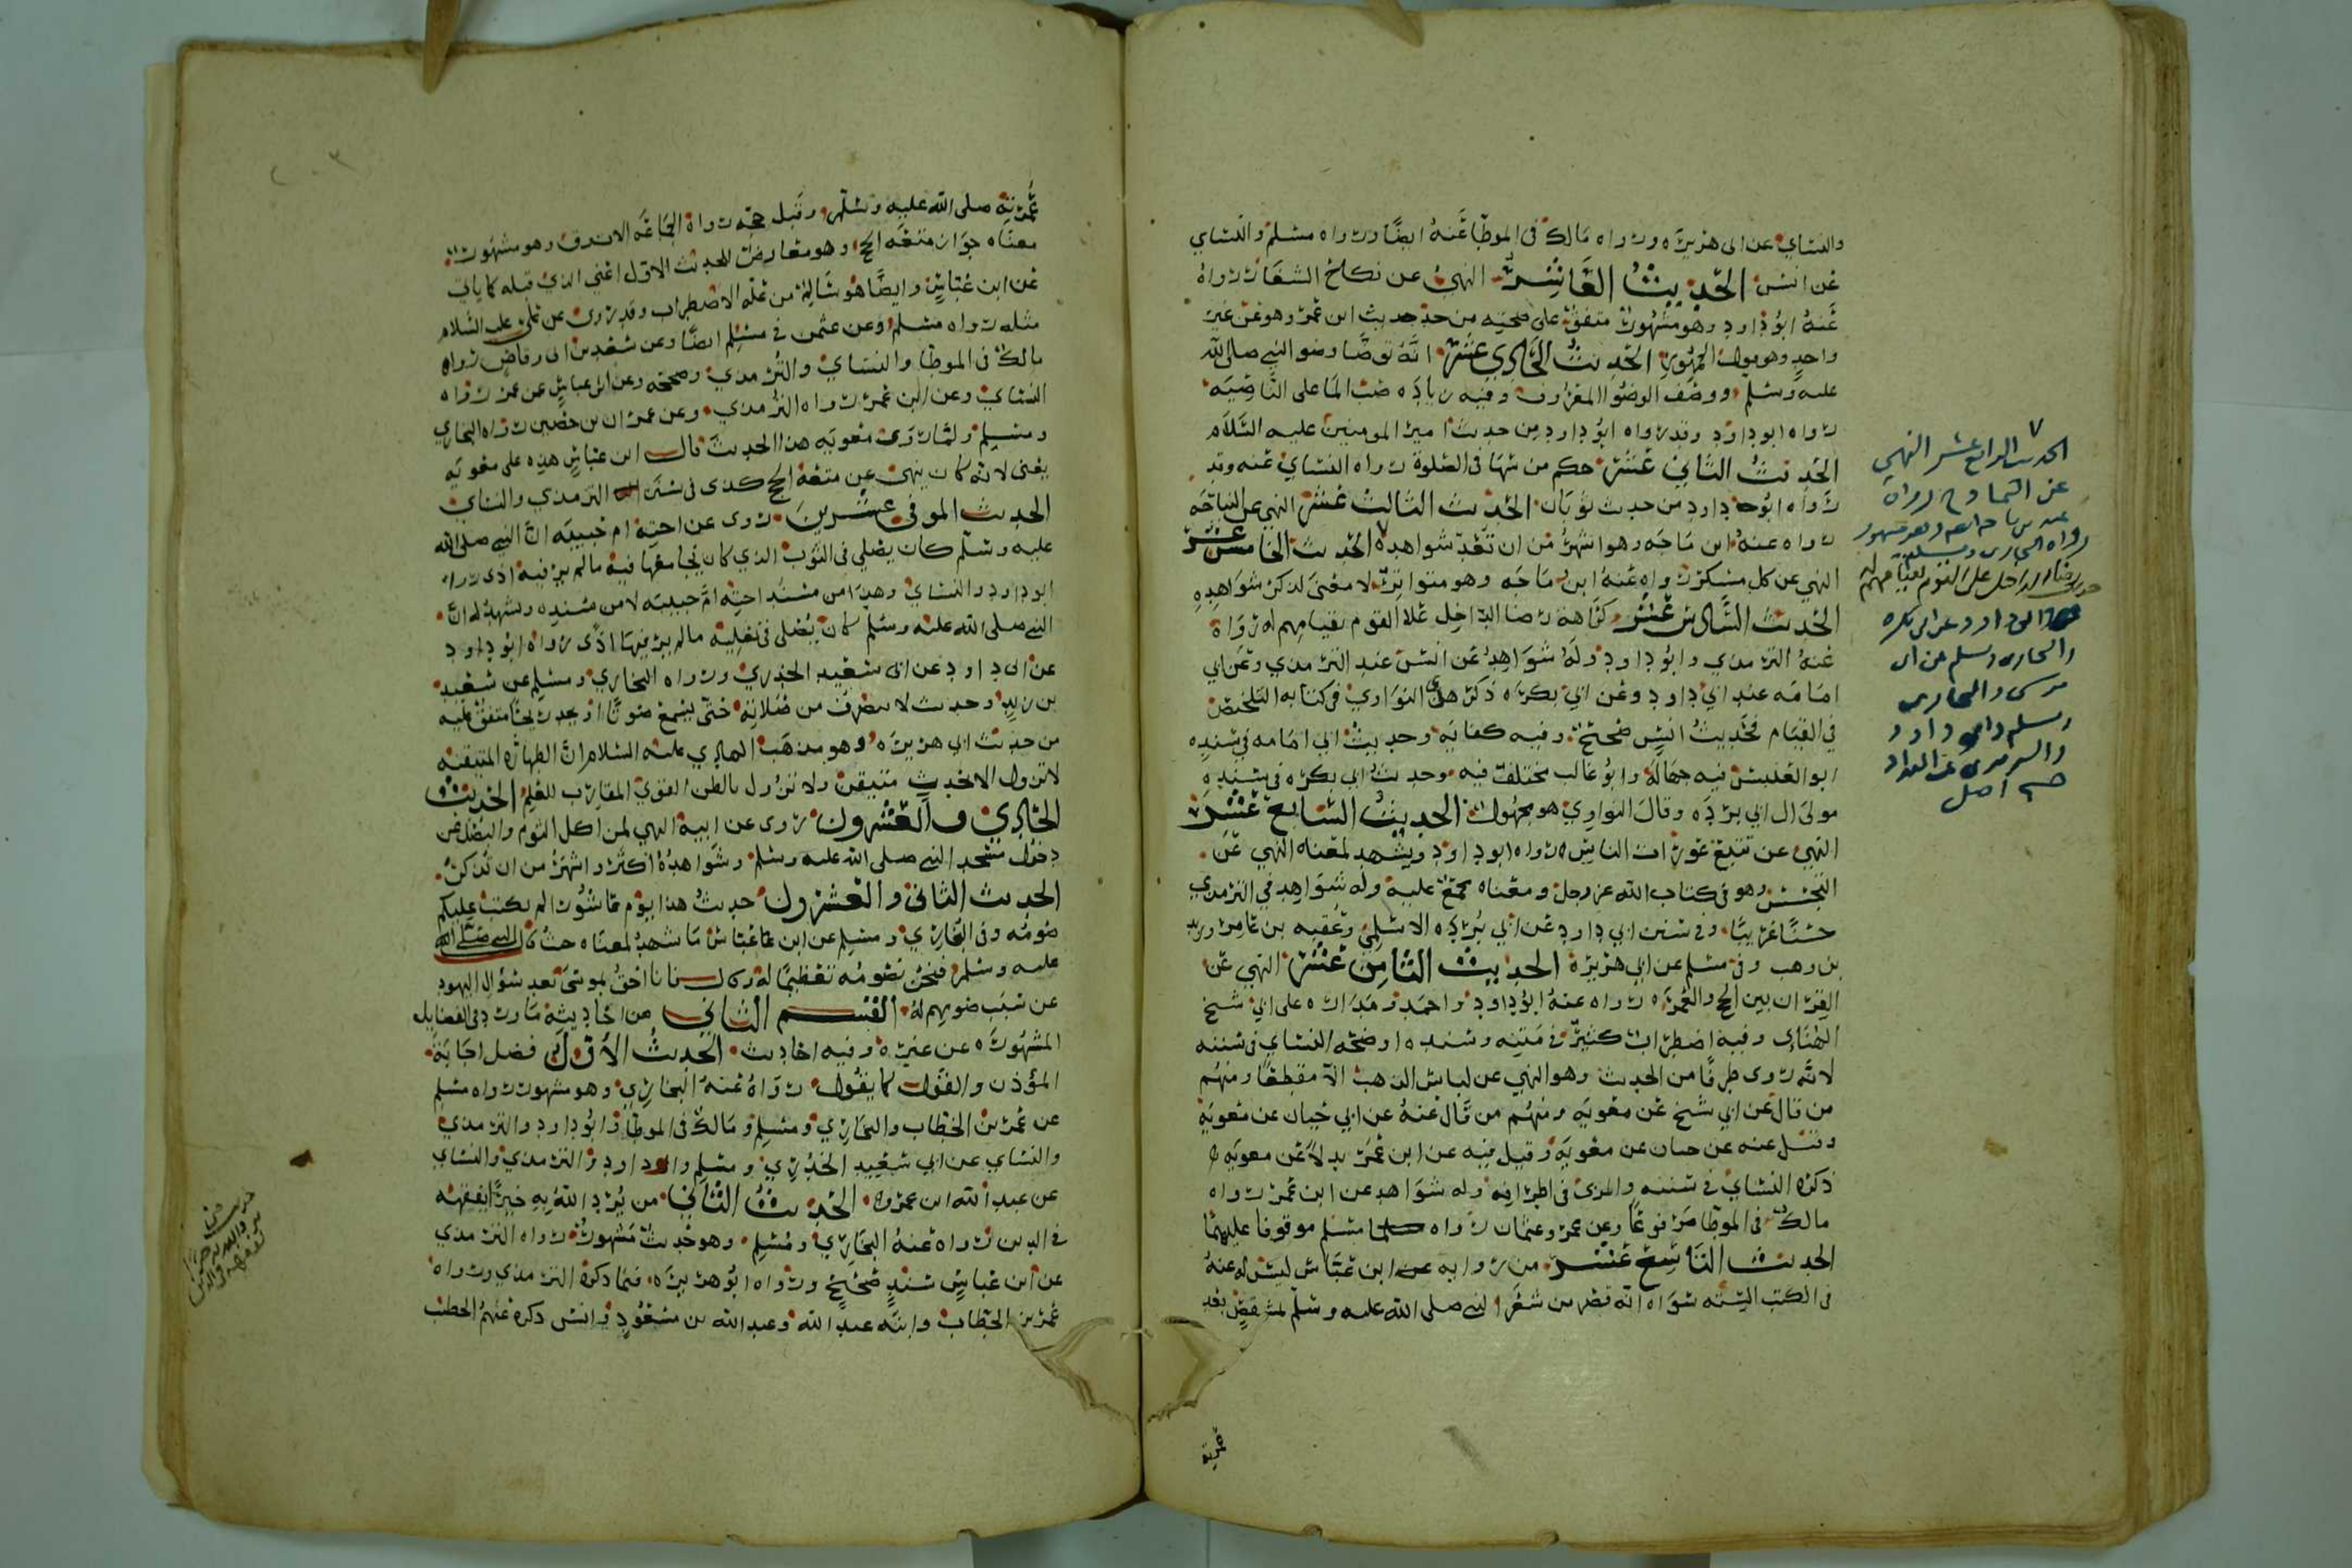 والنسائي عن ابى هريره ورواه مالك فى الموطا عنه ايضا ورواه مسلم والنساي
عن انس الحديث العاشر النهي عن نكاح الشغار رواه
عنه ابو داود وهو مشهور متفق على صحته من حديث ابن عمر وهو عن غير
واحد وهو قول الجمهور الحديث الحادي عشر انه توضا وضو النبي صلى الله
عليه وسلم ووصف الوضو المعروف وفيه زياده صب الما على الناصيه
رواه ابو داود وقد رواه ابو داود من حديث امير المومنين عليه السلام
الحديث الثاني عشر حكم من سها فى الصلوة رواه النساي عنه وقد
رواه ابو داود من حديث ثوبان الحديث الثالث عشر النهي عن النياحه
رواه عنه ابن ماجه وهو اشهر من ان تعد شواهده الحديث الخامس عشر
النهي عن كل مسكر رواه عنه ابن ماجه وهو متواتر لا معنى لذكر شواهده
الحديث السادس عشر كراهة رضا الداخل على القوم بقيامهم له رواه
عنه الترمذي وابو داود وله شواهد عن انس عند الترمذي وعن ابي
امامه عند ابي داود وعن ابي بكره ذكرها النواوي فى كتابه
فى القيام فحديث انس صحيح وفيه كفايه وحديث ابي امامه فى سنده
ابو العدبس فيه جهالة وابو غالب مختلف فيه وحديث ابي بكره فى سنده
مولى ال ابي برده وقال النواوي هو مجهول الحديث السابع عشر
النهي عن تتبع عورات الناس رواه ابو داود ويشهد لمعناه النهي عن
التجسس وهو فى كتاب الله عز وجل ومعناه مجمع عليه وله شواهد فى الترمذي
حسنا غريبا وفى سنن ابي داود عن ابي برزه الاسلمي وعقبه بن عامر وزيد
بن وهب وفى مسلم عن ابي هريرة الحديث الثامن عشر النهي عن
القران بين الحج والعمره رواه عنه ابو داود واحمد ومداره على ابي شيخ
الهنائي وفيه اضطراب كثير فى متنه وسنده اوضحه النساي فى سننه
لانه روى طرفا من الحديث وهو النهي عن لباس الذهب الا مقطعا ومنهم
من قال عن ابي شيخ عن معويه ومنهم من قال عنه عن ابي حيان عن معويه
وقيل عنه عن حمان عن معويه وقيل فيه عن ابن عمر بدلا عن معويه
ذكره النساي فى سننه والمزى فى اطرافه وله شواهد عن ابن عمر رواه
مالك فى الموطا مرفوعا وعن عمر وعثمان رواه مسلم موقوفا عليهما
الحديث التاسع عشر من روايه ابن عباس ليس له عنه
فى الكتب الستة سواه انه قصر من شعر النبي صلى الله عليه وسلم بمشقص بعد
عمرته
الحديث الرابع عشر النهي
عن التمادح رواه
عنه ابن ماجه وهو مشهور
رواه البخارى ومسلم
ابو داود عن ابى بكره
والبخارى ومسلم عن ابى
موسى والبخارى
ومسلم وابو داود
والترمذى عن المقداد
صح اصل
عمرته صلى الله عليه وسلم وقبل حجه رواه الجماعه الا وهو مشهور
معناه جواز متعه الحج وهو معارض للحديث الاول اعني الذي قبله كما ياتي
عن ابن عباس وايضا هو سالم من علة الاضطراب وقد روى عن علي عليه السلام
مثله رواه مسلم وعن عثمن فى مسلم ايضا وعن سعد بن ابى وقاص رواه
مالك فى الموطا والنساي والترمذي وصححه وعن ابن عباس عن عمر رواه
النساي وعن ابن عمر رواه الترمذي وعن عمران بن حصين رواه البخاري
ومسلم ولما روى معويه هذا الحديث قال ابن عباس هذه على معويه
يعنى لانه كان ينهى عن متعه الحج كذى فى سنن الترمذي والنساي
الحديث الموفي عشرين روى عن اخته ام حبيبه ان النبي صلى الله
عليه وسلم كان يصلي فى الثوب الذي كان يجامعها فيه مالم ير فيه اذى رواه
ابو داود والنساي وهذا من مسند اخته ام حبيبه لا من مسنده ويشهد له ان
النبي صلى الله عليه وسلم كان يصلى فى نعليه مالم ير فيهما اذى رواه ابو داود
عن ابى سعيد الخدري ورواه البخاري ومسلم عن سعيد
بن زيد وحديث لا ينصرف من صلاته حتى يسمع صوتا او يجد ريحا متفق عليه
من حديث ابي هريره وهو مذهب الهادي عليه السلام ان الطهاره المتيقنه
لا تزول الا بحدث متيقن ولا تزول بالظن القوي المقارب للعلم الحديث
الحادي والعشرون روى عن ابيه النهي لمن اكل الثوم والبصل عن
دخول مسجد النبي صلى الله عليه وسلم وشواهده اكثر واشهر من ان تذكر
الحديث الثاني والعشرون حديث هذا يوم عاشورا لم يكتب عليكم
صومه وفى البخاري ومسلم عن ابن عباس ما يشهد لمعناه حيث قال النبي صلى الله
عليه وسلم فنحن نصومه تعظيما له وكان انا احق بموسى بعد سؤال اليهود
عن سبب صومهم له القسم الثاني من احاديثه ما ورد فى الفضايل
المشهوره عن غيره وفيه احاديث الحديث الاول فضل اجابة
المؤذن والقول كما يقول رواه عنه البخاري وهو مشهور رواه مسلم
عن عمر بن الخطاب والبخاري ومسلم ومالك فى الموطا وابو داود والترمذي
والنساي عن ابي سعيد الخدري ومسلم وابو داود والترمذي والنساي
عن عبد الله ابن عمرو الحديث الثاني من يرد الله به خيرا يفقهه
فى الدين رواه عنه البخاري ومسلم وهو حديث مشهور رواه الترمذي
عن ابن عباس بسند صحيح ورواه ابو هريره فيما ذكره الترمذي ورواه
عمر بن الخطاب وابنه عبد الله وعبد الله بن مسعود وانس ذكره عنهم الخطيب